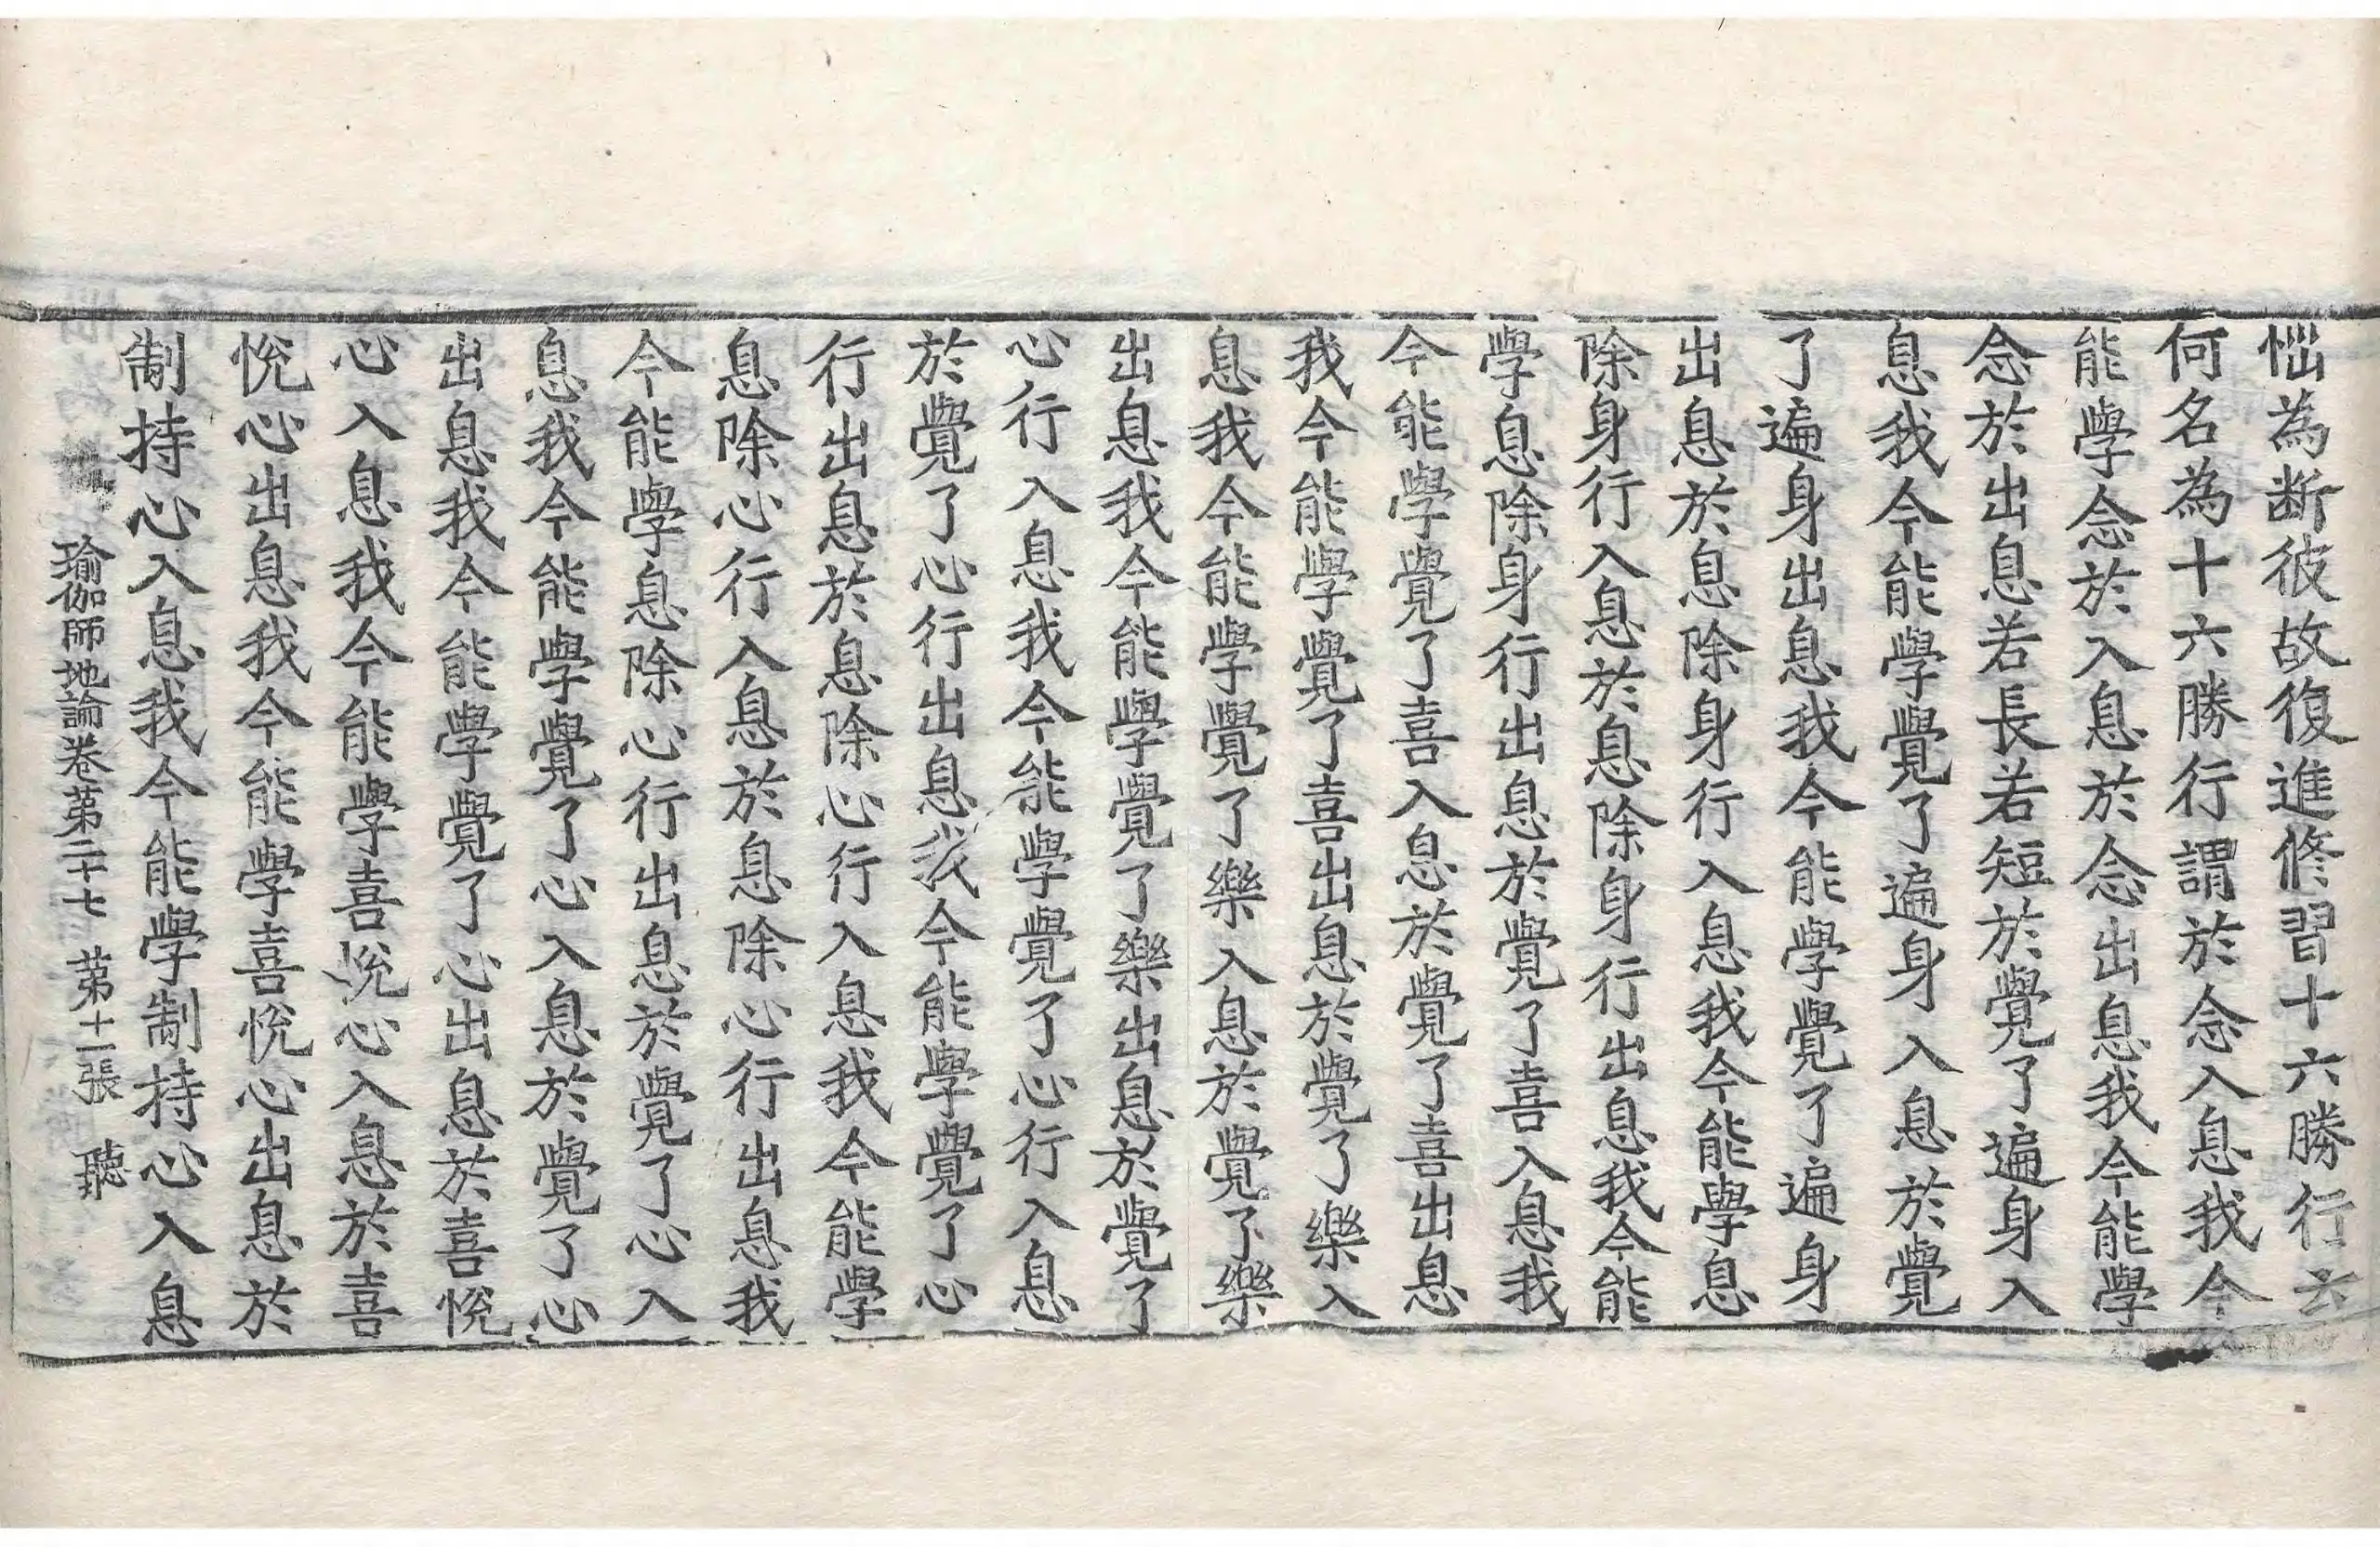 惱為断彼故復進修習十六勝行云
何名為十六勝行謂於念入息我今
能學念於入息於念出息我今能學
念於出息若長若短於覺了遍身入
息我今能學覺了遍身入息於覺
了遍身出息我今能學覺了遍身
出息於息除身行入息我今能學息
除身行入息於息除身行出息我今能
學息除身行出息於覺了喜入息我
今能學覺了喜入息於覺了喜出息
我今能學覺了喜出息於覺了樂入
息我今能學覺了樂入息於覺了樂
出息我今能學覺了樂出息於覺了
心行入息我今能學覺了心行入息
於覺了心行出息我今能學覺了心
行出息於息除心行入息我今能學
息除心行入息於息除心行出息我
今能學息除心行出息於覺了心入
息我今能學覺了心入息於覺了心
出息我今能學覺了心出息於喜悅
心入息我今能學喜悅心入息於喜
悅心出息我今能學喜悅心出息於
制持心入息我今能學制持心入息
瑜伽師地論卷第二十七 第十二張 聽